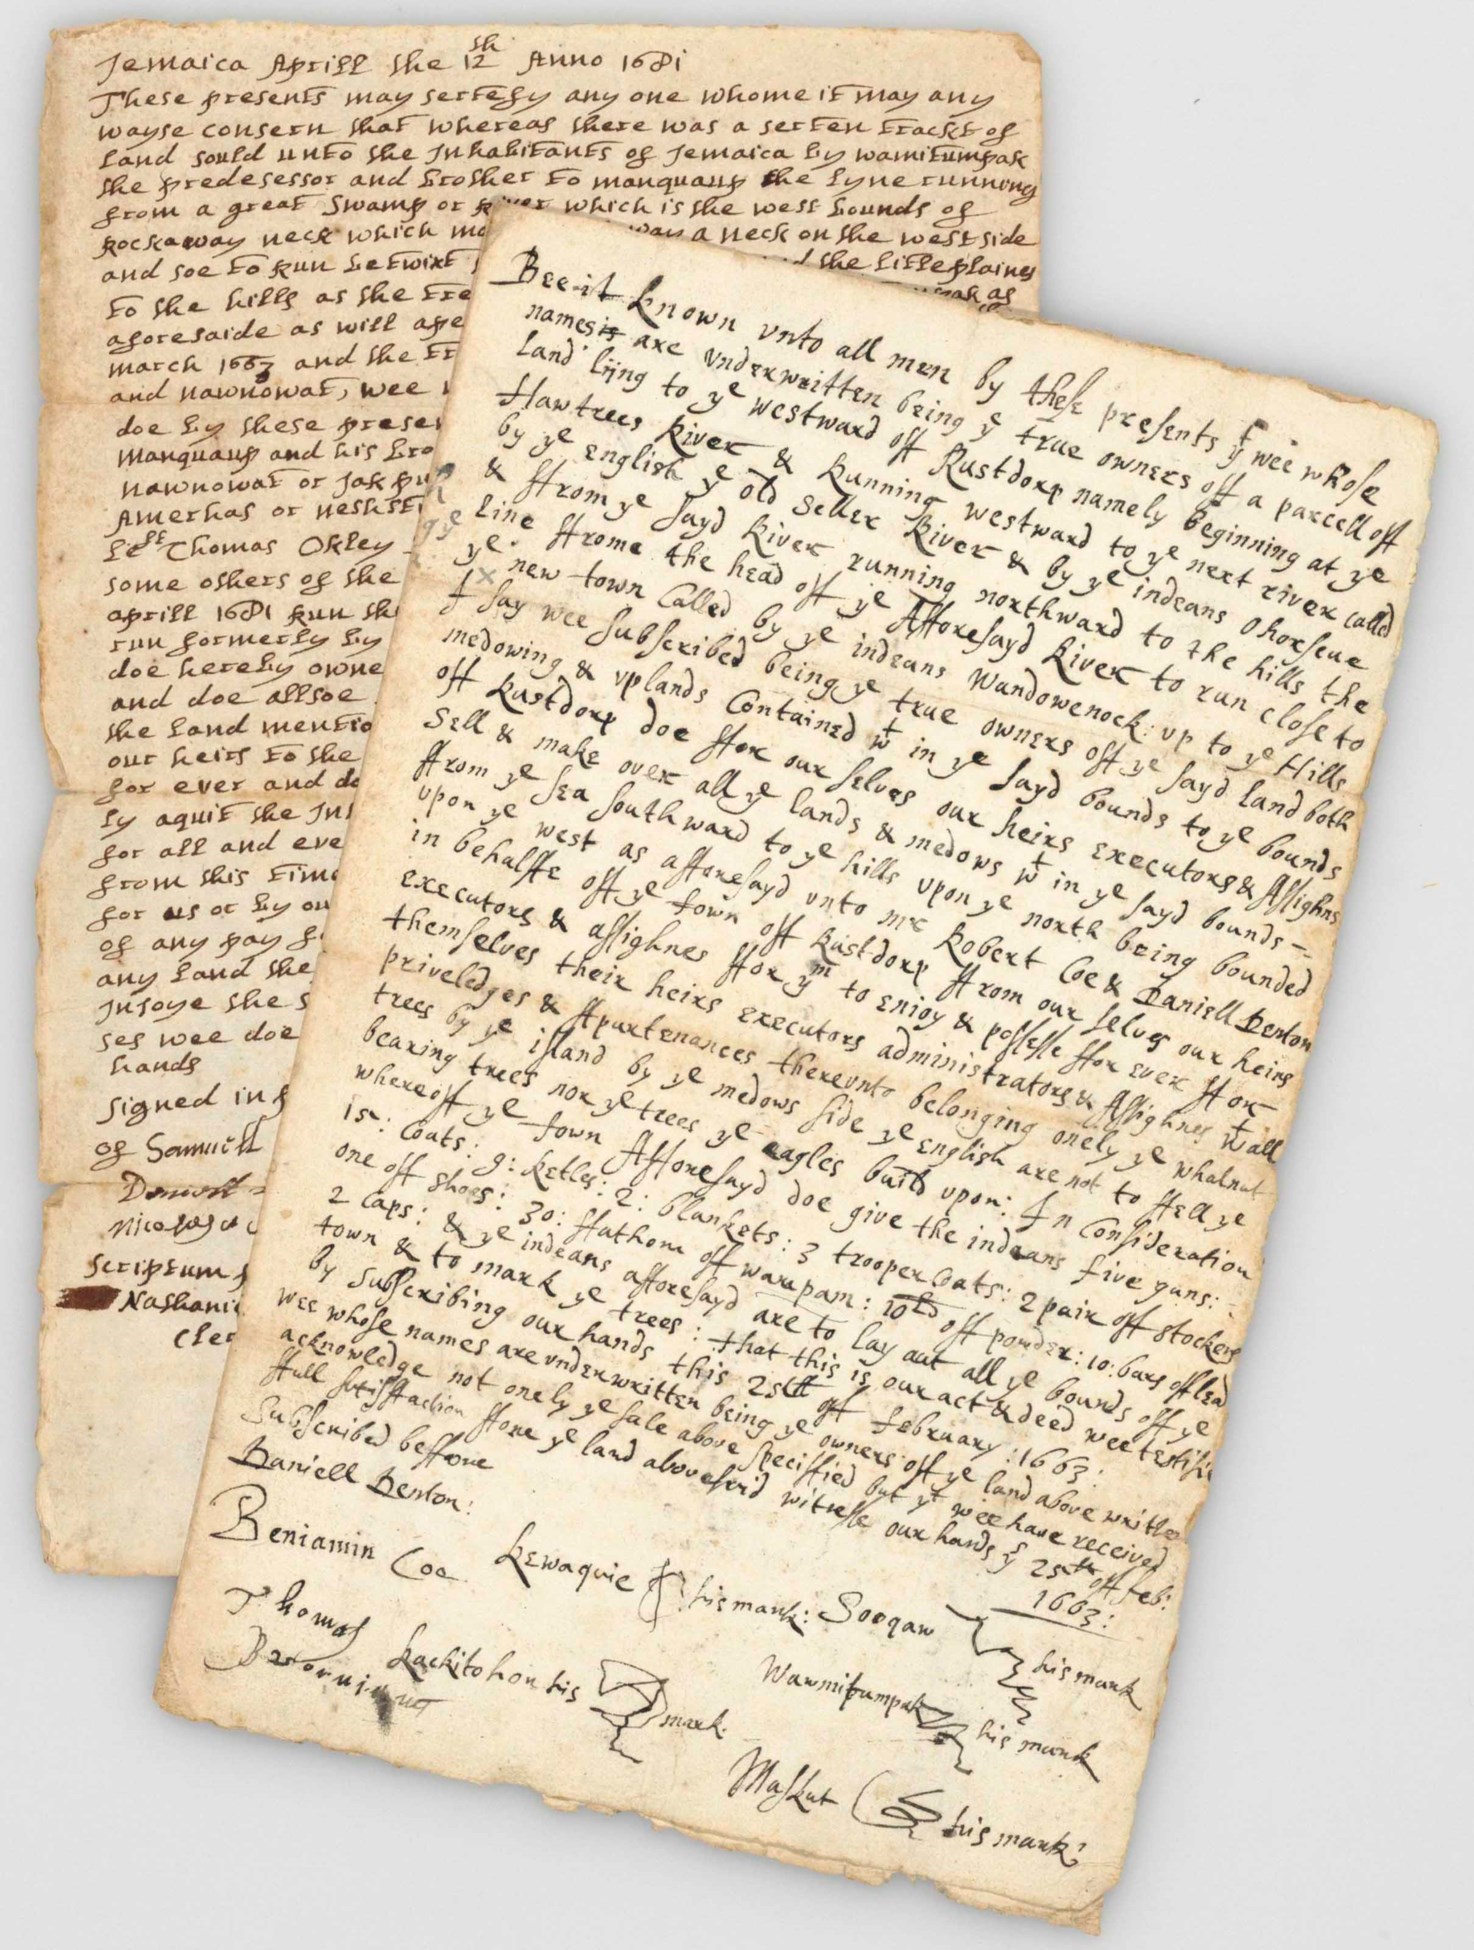 Jemaica Aprill the 12th Anno 1681
These presents may sertefy any one whome it may any
wayse consern that whereas there was a serten trackt of
Land sould unto the Inhabitants of Jemaica by wamitumpak
the predesessor and brother to manquaup the lyne running
from a great Swamp or river which is the west bounds of
Rockaway neck which ma way a neck on the west side
and soe to run betwixt d the litle plaines
to the hills as the tre mpak as
aforesaide as will ape
march 1663 and the tr
and nawnowat, wee
doe by these presen
Manquaup and his bro
nawnowat or Jak pu
Amerhas or
left Thomas Okley
some others of the
aprill 1681 run the
run formerly by
doe hereby owne
and doe allsoe
the Land mentio
our heirs to the
for ever and do
ly aquit the Inh
for all and eve
from this time
for us or by ou
of any pay f
any Land the
Injoye the s
ses wee doe
hands
Signed in p
of Samuell
nicolas
scriptum
Nathani
Cler
Bee it known vnto all men by these presents yt wee whose
names is are vnderwritten being ye true owners off a parcell off
Land lijng to ye westward off Rustdorp namely beginning at ye
Hawtrees River & Running westward to ye next river called
by ye english ye old Seller River & by ye indeans Ohorseue
& ffrom ye sayd River running northward to the hills the
Line ffrome the head off ye Afforesayd River to run close to
ye new town Called by ye indeans Wandowenock: vp to ye Hills
I say wee subscribed being ye true owners off ye sayd Land both
medowing & vplands Contained wt in ye sayd bounds to ye bounds
off Rustdorp doe ffor our selves our heirs executors & Assighns
Sell & make over all ye lands & medows wt in ye sayd bounds
ffrom ye sea southward to ye hills vpon ye north being bounded
vpon ye west as afforesayd vnto mr Robert Coe & Daniell Denton
in behalffe off ye town off Rustdorp ffrom our selves our heirs
executors & assighnes ffor ym to enioy & possesse ffor ever ffor
themselves their heirs executors administrators & Assighnes wt all
priveledges & Apurtenances therevnto belonging onely ye whalnut
trees by ye island by ye medows side ye english are not to ffell ye
bearing trees nor ye trees ye eagles build vpon: In Consideration
whereoff ye town Afforesayd doe give the indeans five guns:
15: Coats: 9: ketles: 2: blankets: 3 trooper Coats: 2 pair off stockens
one off shoes: 30: ffathom off wampam: 10 ld off powder: 10: bars off lead
2 Caps: & ye indeans afforesayd are to lay out all ye bounds off ye
town & to mark ye trees: that this is our act & deed wee testifie
by subscribing our hands this 25tt off february: 1663:
wee whose names are vnderwritten being ye owners off ye land above written
acknowledge not onely ye sale above speciffied but yt wee have received
ffull satisffaction ffore ye land abovesaid witnesse our hands ys 25th off feb:
Subscribed beffore 1663:
Daniell Denton:
Beniamin Coe Rewaquie his mark: Sooqaw his mark
Thomas
Rackitohon his mark. Wawmitumpak his mark
Maskut his mark: